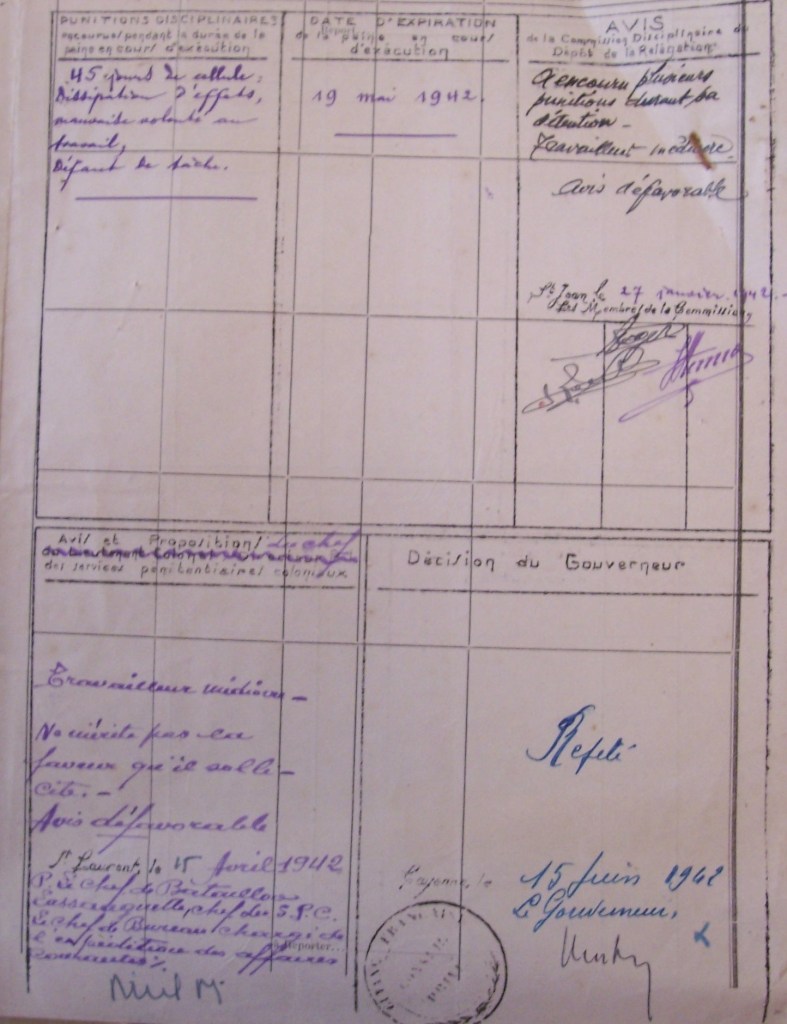 PUNITIONS DISCIPLINAIRES
encourues pendant la durée de la
peine en cours d'exécution
45 jours de cellule;
Dissipation d'effets,
mauvaise volonté au
travail,
Défaut de tâche.
DATE D'EXPIRATION
de la peine en cours
d'exécution
19 mai 1942.
AVIS
de la Commission Disciplinaire du
Dépôt de la Relégation
A encouru plusieurs
punitions durant sa
détention -
Travaillent médiocre.
Avis défavorable
St Jean, le 27 janvier 1942.-
Les Membres de la Commission
Avis et Proposition du chef
des services pénitentiaires coloniaux
Travailleur médiocre -
Ne mérite pas la
faveur qu'il solli-
cite. -
Avis défavorable
St Laurent, le 15 Avril 1942
P. Le Chef de Bataillon
chef du S.P.C.
Le Chef de Bureau chargé de
l'expédition des affaires
courantes
Reporter...
Décision du Gouverneur
Rejeté
Cayenne, le 15 Juin 1942
Le Gouverneur,
GUYANE FRANÇAISE
CONSEIL
PRIVÉ